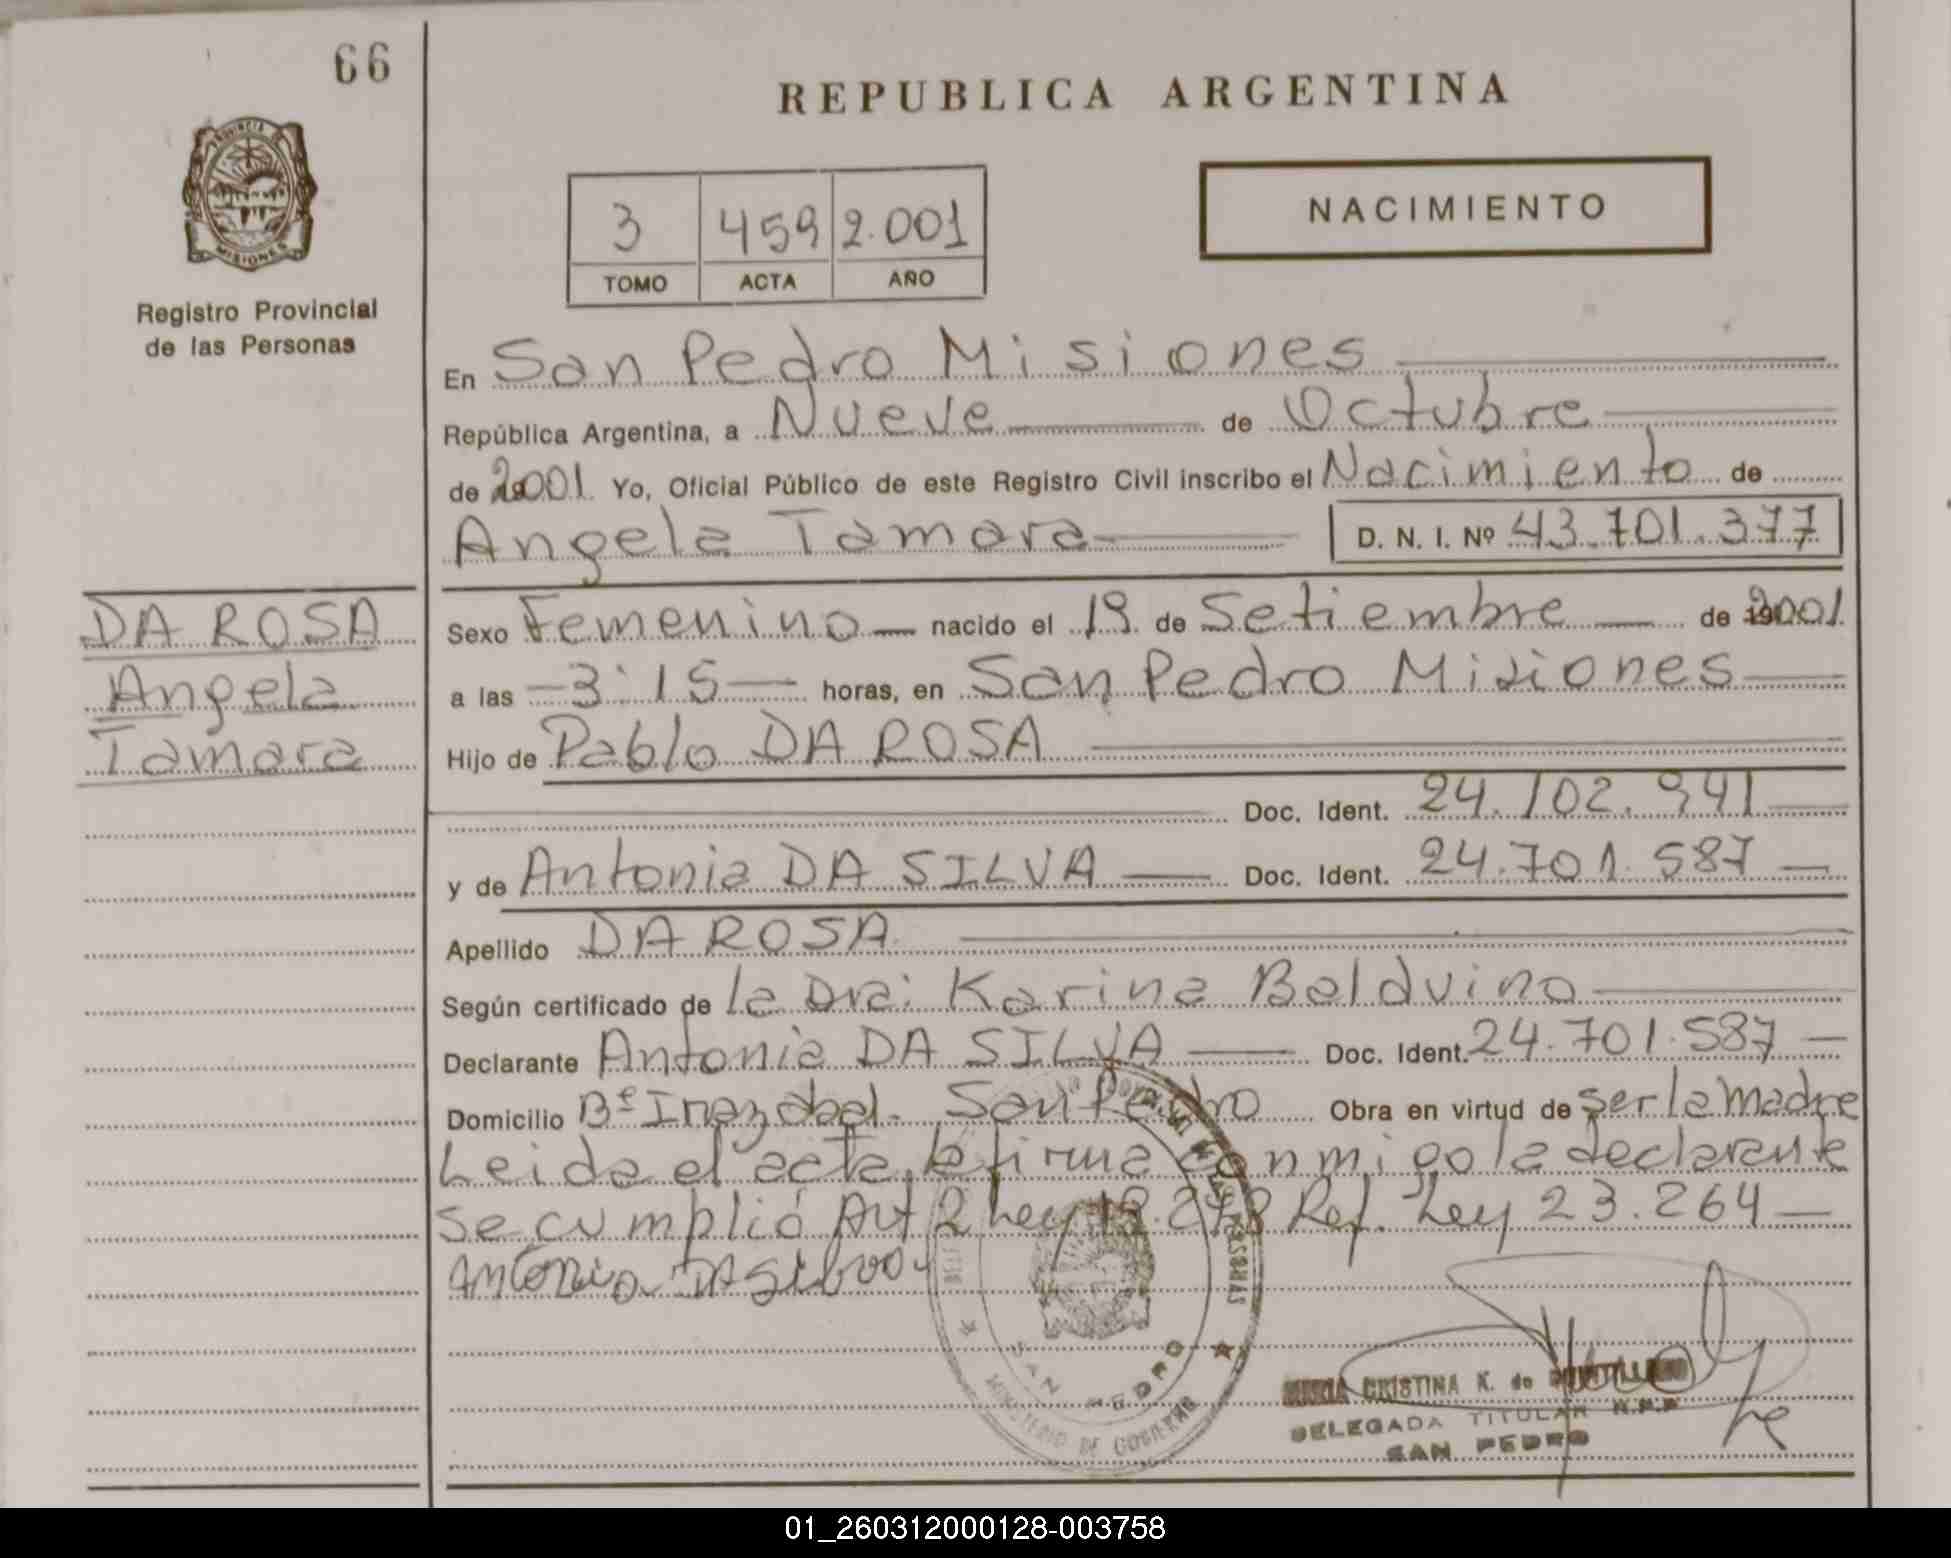 66
REPUBLICA ARGENTINA
PROVINCIA DE
MISIONES
Registro Provincial
de las Personas
3 459 2.001
TOMO ACTA AÑO
NACIMIENTO
En San Pedro Misiones
República Argentina, a Nueve de Octubre
de 2001 Yo, Oficial Público de este Registro Civil inscribo el Nacimiento de
Angela Tamara D. N. I. Nº 43.701.377
DA ROSA
Angela
Tamara
Sexo Femenino nacido el 19 de Setiembre de 2001
a las 3:15 horas, en San Pedro Misiones
Hijo de Pablo DA ROSA
Doc. Ident. 24.102.941
y de Antonia DA SILVA Doc. Ident. 24.701.587
Apellido DA ROSA
Según certificado de la Dra: Karina Balduino
Declarante Antonia DA SILVA Doc. Ident. 24.701.587
Domicilio Bº Irazabal. San Pedro Obra en virtud de ser la madre
Leida el acta, la firma conmigo la declarante
se cumplió Art 2 Ley 18.248 Ref. Ley 23.264
Antonia DA Silva
SAN PEDRO
MINISTERIO DE GOBIERNO
CRISTINA K. de
DELEGADA TITULAR R.P.P
SAN PEDRO
01_260312000128-003758